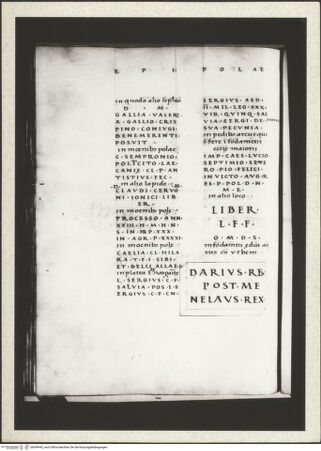 E P I P O L A E
in quodā alio sepul
D . M .
GALLIA VALERI
A . GALLIO CRIS
PINO . CONIVGI .
BENEMERENTI .
POSVIT .
in moenib
C . SEMPRONIO .
POLTCITO . LAE
CANIAE . CL . P . AN
TISTIVS . FEC .
in alio lapide
CLAVDI . CERVO
NI . IONICI . LIB
ER .
in moenib polae
PROCESSO . ANN .
XXIII . H . M . H . N .
S . IN . FR . P . XXX .
IN . AGR . P . XXXXI .
in moenib polae
CAELIA . CL . HILA
RA . T . F . I . SIBI .
ET . BELLI . ALLAEG
in platea S. Margarite
L . SERGIVS . C . F .
SALVIA . POS . L . S
ERGIVS . C . F . CN .
SERGIVS . AED .
II . MIL . LEG . XXX .
VIR . QVINQ . SAL
VIA . SERGI . DE
SVA PECVNIA .
IMP . CAES . LVCIO .
SEPTIMIO . SEVE
RO . PIO . FELICI .
INVICTO . AVG . R
ES . P . POL . D . N .
M . E .
in alio loco .
LIBER .
L . F . F .
O . M . D . S .
DARIVS . RE .
POST . ME
NELAVS . REX .